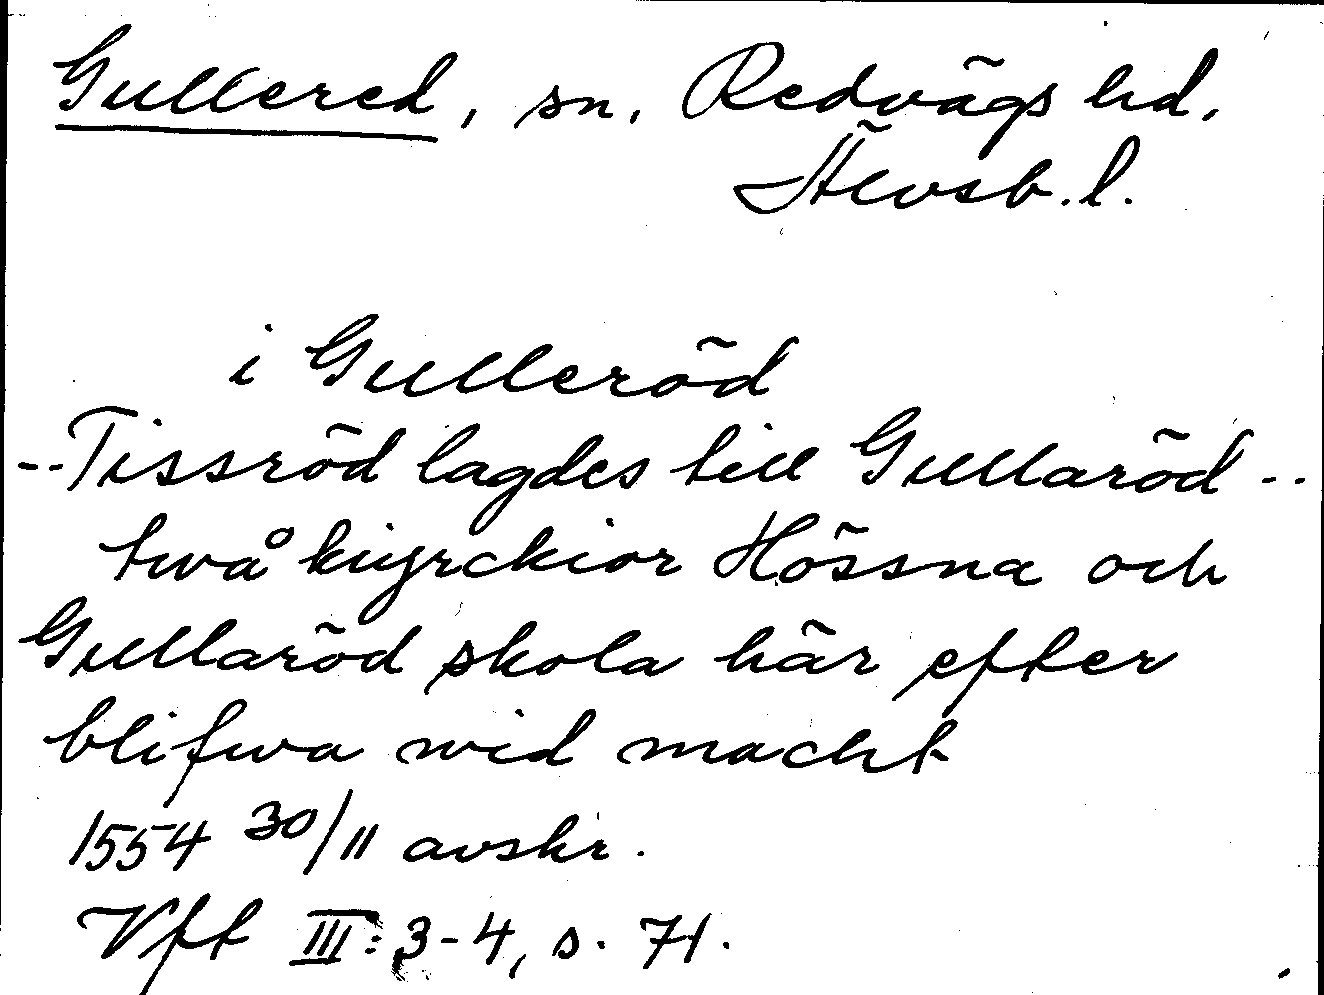 Gullered, sn, Redvägs hd,
Älvsb. l.
i Gulleröd
--Tissröd lagdes till Gullaröd--
twå kiyrckior Hössna och
Gullaröd skola här efter
blifwa wid macht
1554 30/11 avskr.
Vft III: 3-4, s. 71.